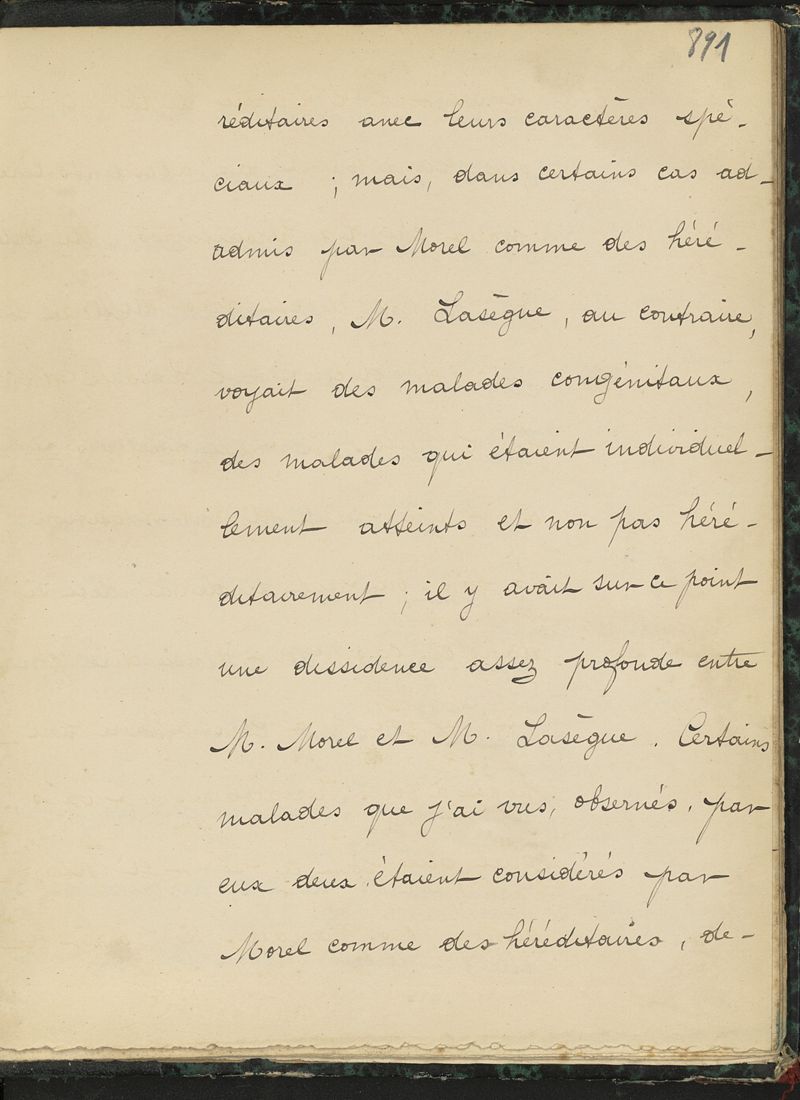 891
réditaires avec leurs caractères spé-
ciaux ; mais, dans certains cas ad-
admis par Morel comme des héré-
ditaires, M. Lasègue, au contraire,
voyait des malades congénitaux,
des malades qui étaient individuel-
lement atteints et non pas héré-
ditairement ; il y avait sur ce point
une dissidence assez profonde entre
M. Morel et M. Lasègue. Certains
malades que j'ai vus, observés, par
eux deux étaient considérés par
Morel comme des héréditaires, de-